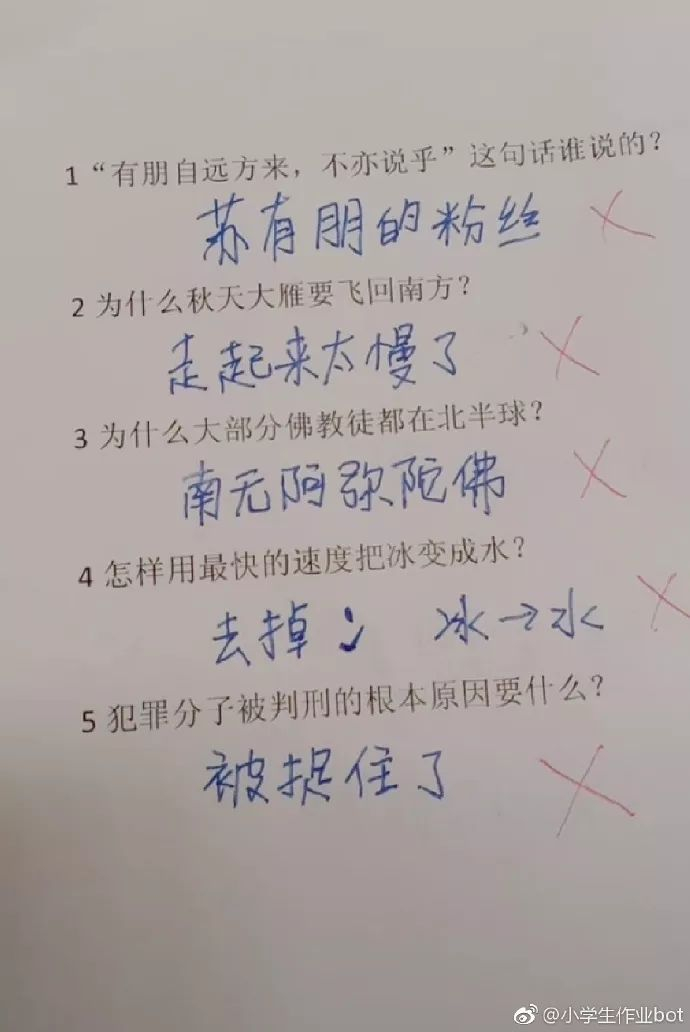 1 “有朋自远方来，不亦说乎”这句话谁说的？
苏有朋的粉丝
2 为什么秋天大雁要飞回南方？
走起来太慢了
3 为什么大部分佛教徒都在北半球？
南无阿弥陀佛
4 怎样用最快的速度把冰变成水？
去掉冫 冰→水
5 犯罪分子被判刑的根本原因要什么？
被捉住了
@小学生作业bot